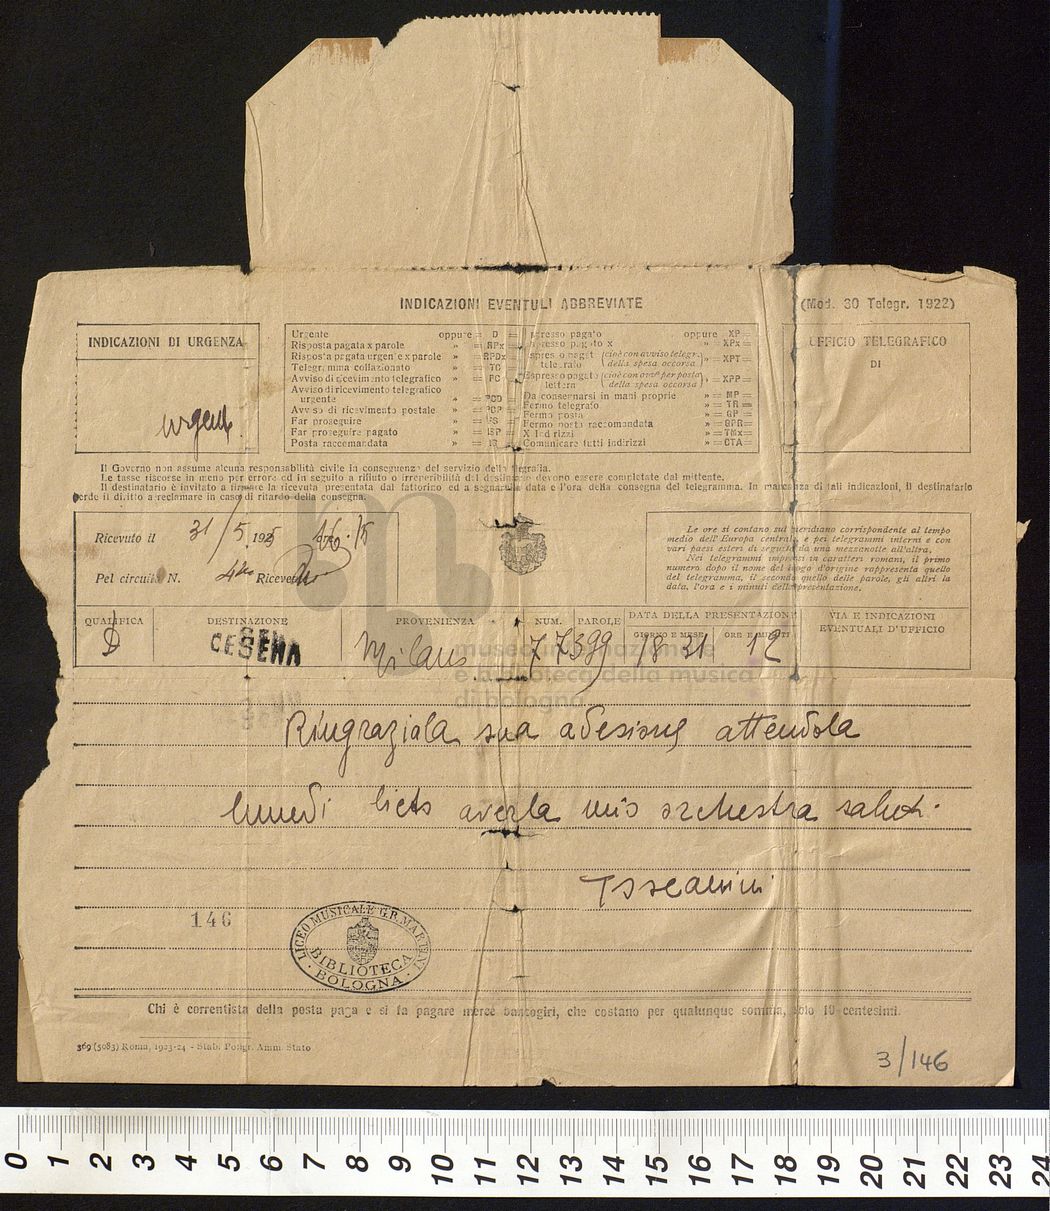 INDICAZIONI EVENTULI ABBREVIATE
(Mod. 30 Telegr. 1922)
INDICAZIONI DI URGENZA
urgente
Urgente oppure = D =
Risposta pagata x parole » = RPx =
Risposta pagata urgente x parole » = RPDx =
Telegramma collazionato » = TC =
Avviso di ricevimento telegrafico » = PC =
Avviso di ricevimento telegrafico
urgente » = PCD =
Avviso di ricevimento postale » = PCP =
Far proseguire » = FS =
Far proseguire pagato »
Posta raccomandata »
Espresso pagato oppure XP =
Espresso pagato x » = XPx =
Espresso pagato telegrafo (cioè con avviso telegr. della spesa occorsa) » = XPT =
Espresso pagato lettera (cioè con avvº per posta della spesa occorsa) » = XPP =
Da consegnarsi in mani proprie » = MP =
Fermo telegrafo » = TR =
Fermo posta » = GP =
Fermo posta raccomandata » = GPR =
X indirizzi » = TMx =
Comunicare tutti indirizzi » = CTA =
UFFICIO TELEGRAFICO
DI
Il Governo non assume alcuna responsabilità civile in conseguenza del servizio della telegrafia.
Le tasse riscosse in meno per errore od in seguito a rifiuto o irreperibilità del destinatario devono essere completate dal mittente.
Il destinatario è invitato a firmare la ricevuta presentata dal fattorino ed a segnarvi la data e l'ora della consegna del telegramma. In mancanza di tali indicazioni, il destinatario
perde il diritto a reclamare in caso di ritardo della consegna.
Ricevuto il 31/5 1925 ore 16.15
Pel circuito N. Ricevente
Le ore si contano sul meridiano corrispondente al tempo
medio dell'Europa centrale, e pei telegrammi interni e con
vari paesi esteri di seguito da una mezzanotte all'altra.
Nei telegrammi impressi in caratteri romani, il primo
numero dopo il nome del luogo d'origine rappresenta quello
del telegramma, il secondo quello delle parole, gli altri la
data, l'ora e i minuti della presentazione.
QUALIFICA DESTINAZIONE PROVENIENZA NUM. PAROLE DATA DELLA PRESENTAZIONE VIA E INDICAZIONI
GIORNO E MESE ORE E MINUTI EVENTUALI D'UFFICIO
D CESENA Milano 31 12
museo internazionale
e biblioteca della musica
di bologna
Ringraziola sua adesione attendola
lunedi lieto averla mio orchestra saluti.
Toscanini
146
LICEO MUSICALE G.B. MARTINI
BIBLIOTECA
· BOLOGNA ·
Chi è correntista della posta paga e si fa pagare mercè bancogiri, che costano per qualunque somma, solo 10 centesimi.
369 (5083) Roma, 1923-24 - Stab. Poligr. Amm. Stato
3/146
0 1 2 3 4 5 6 7 8 9 10 11 12 13 14 15 16 17 18 19 20 21 22 23 24